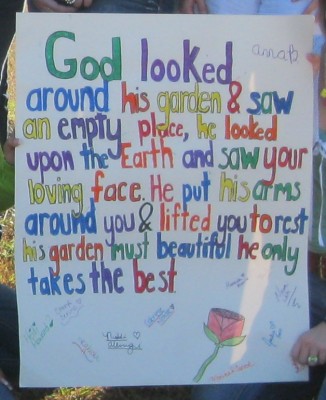 God looked
around his garden & saw
an empty place, he looked
upon the Earth and saw your
loving face. He put his arms
around you & lifted you to rest
his garden must beautiful he only
takes the best